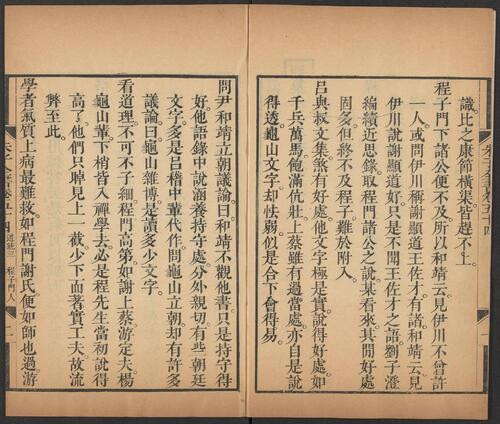 識比之康節橫渠皆趕不上。
程子門下諸公便不及。所以和靖云見伊川不曾許
一人。或問伊川稱謝顯道王佐才。有諸。和靖云見
伊川說謝顯道好。只是不聞王佐才之語。劉子澄
編續近思錄。取程門諸公之說。某看來其閒好處
固多。但終不及程子。難於附入。
呂與叔文集煞有好處。他文字極是實。說得好處如
千兵萬馬飽滿伉壯。上蔡雖有過當處。亦自是說
得透。龜山文字却怯弱。似是合下會得易。
朱子全書卷五十四
問尹和靖立朝議論。曰和靖不觀他書。只是持守得
好。他語錄中說涵養持守處分外親切。有些朝廷
文字多是呂稽中輩代作。問龜山立朝却有許多
議論。曰龜山雜博。是讀多少文字。
看道理不可不子細。程門高第如謝上蔡游定夫楊
龜山輩下梢皆入禪學去。必是程先生當初說得
高了。他們只晫見上一截。少下面著實工夫。故流
弊至此。
學者氣質上病最難救。如程門謝氏便如師也過。游
朱子全書卷五十四 道統三 程子門人